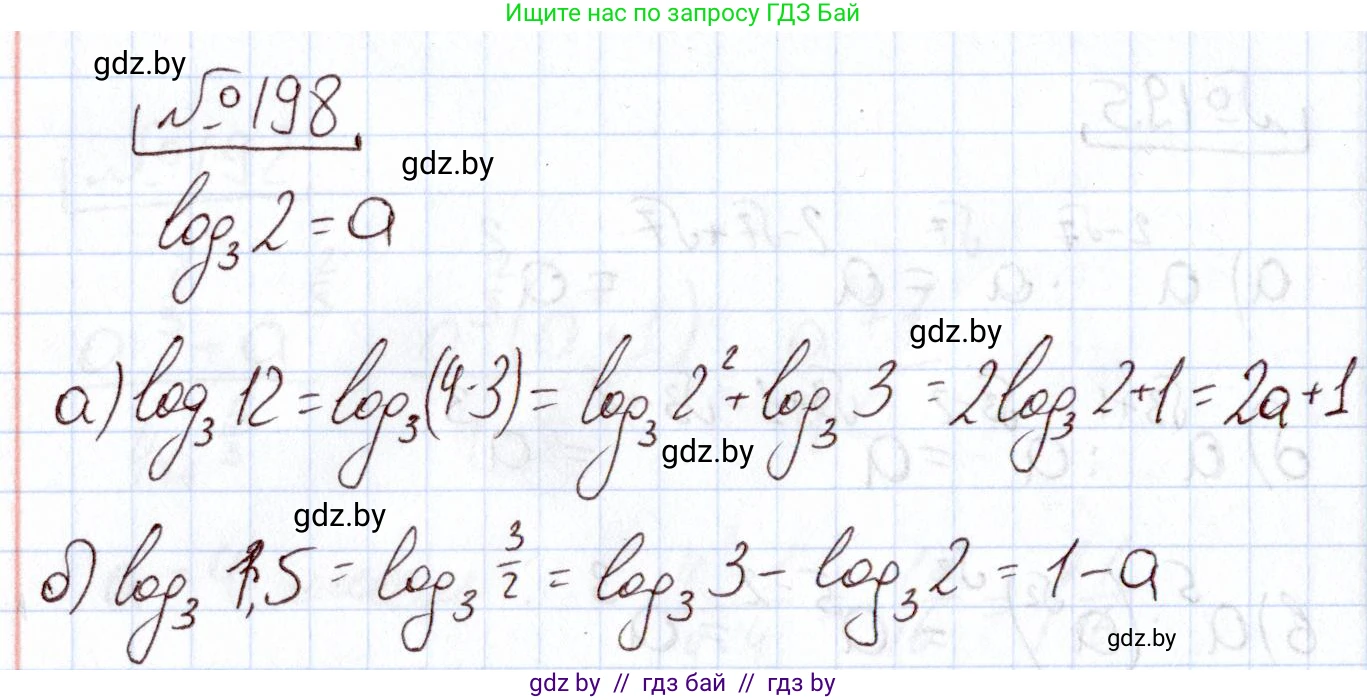 Ищите нас по запросу ГДЗ Бай
gdz.by
№198
gdz.by
log₃2 = a
gdz.by
а) log₃12 = log₃(4·3) = log₃2² + log₃3 = 2log₃2+1 = 2a+1
gdz.by
gdz.by
б) log₃1,5 = log₃ 3/2 = log₃3 - log₃2 = 1-a
gdz.by
gdz by // гдз бай // гдз by